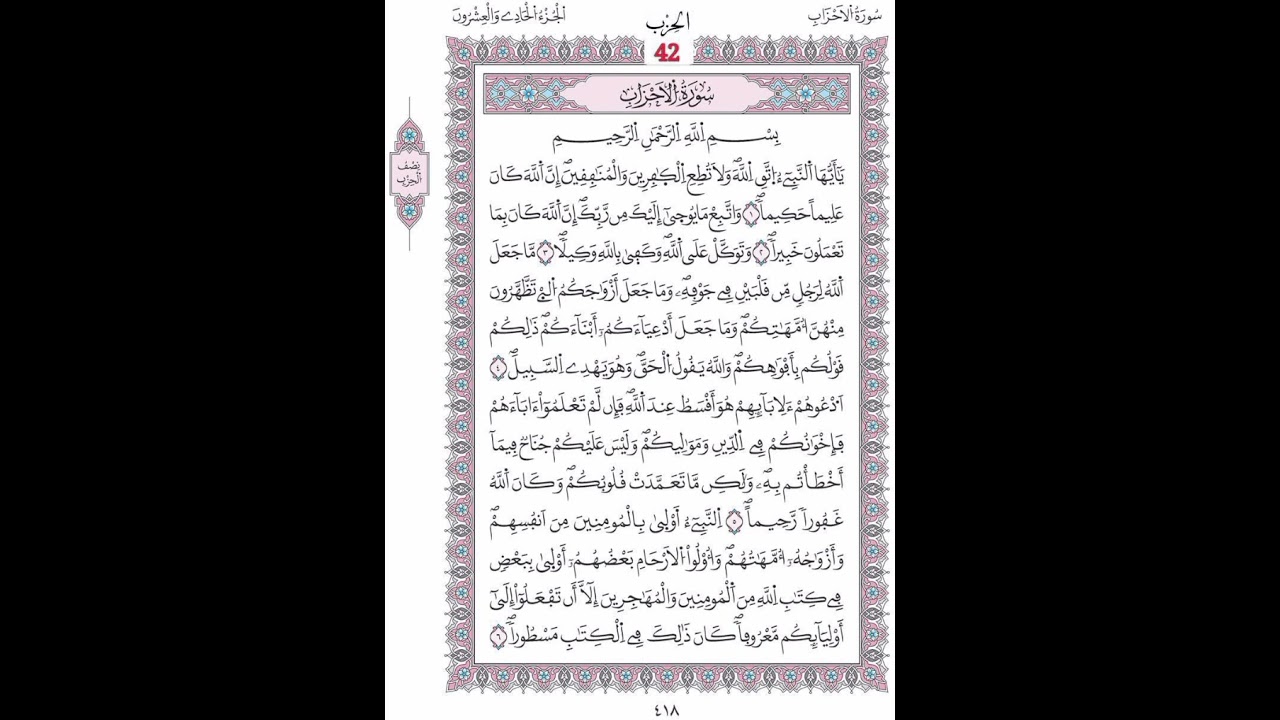 سُورَةُ الْأَحْزَابِ
الحِزْب
الْجُزْءُ الْحَادِے وَالْعِشْرُونَ
42
نِصْفُ
الْحِزْبِ
سُورَةُ الْأَحْزَابِ
بِسْمِ اِ۬للَّهِ اِ۬لرَّحْمَٰنِ اِ۬لرَّحِيمِ
يَٰٓأَيُّهَا اَ۬لنَّبِےٓءُ اِ۪تَّقِ اِ۬للَّهَۖ وَلَا تُطِعِ اِ۬لْكٰ۪فِرِينَ وَالْمُنَٰفِقِينَۖ إِنَّ اَ۬للَّهَ كَانَ
عَلِيماً حَكِيماٗۖ ١ وَاتَّبِعْ مَا يُوح۪يٰٓ إِلَيْكَ مِن رَّبِّكَۖ إِنَّ اَ۬للَّهَ كَانَ بِمَا
تَعْمَلُونَ خَبِيراٗۖ ٢ وَتَوَكَّلْ عَلَي اَ۬للَّهِۖ وَكَف۪يٰ بِاللَّهِ وَكِيلاٗۖ ٣ مَّا جَعَلَ
اَ۬للَّهُ لِرَجُلٖ مِّن قَلْبَيْنِ فِے جَوْفِهِۦۖ وَمَا جَعَلَ أَزْوَٰجَكُمُ اُ۬لٰٓےْ تَظَّهَّرُونَ
مِنْهُنَّ أُمَّهَٰتِكُمْۖ وَمَا جَعَلَ أَدْعِيَآءَكُمُۥٓ أَبْنَآءَكُمْۖ ذَٰلِكُمْ
قَوْلُكُم بِأَفْوَٰهِكُمْۖ وَاللَّهُ يَقُولُ اُ۬لْحَقَّۖ وَهُوَ يَهْدِے اِ۬لسَّبِيلَۖ ٤
اَ۟دْعُوهُمْ ءَلِابَآئِهِمْ هُوَ أَقْسَطُ عِندَ اَ۬للَّهِۖ فَإِن لَّمْ تَعْلَمُوٓاْ ءَابَآءَهُمْ
فَإِخْوَٰنُكُمْ فِے اِ۬لدِّينِ وَمَوَٰلِيكُمْۖ وَلَيْسَ عَلَيْكُمْ جُنَاحٞ فِيمَآ
أَخْطَأْتُم بِهِۦۖ وَلَٰكِن مَّا تَعَمَّدَتْ قُلُوبُكُمْۖ وَكَانَ اَ۬للَّهُ
غَفُوراٗ رَّحِيماًۖ ٥ اِ۬لنَّبِےٓءُ أَوْل۪يٰ بِالْمُومِنِينَ مِنَ اَنفُسِهِمْۖ
وَأَزْوَٰجُهُۥٓ أُمَّهَٰتُهُمْۖ وَأُوْلُواْ اُ۬لَارْحَامِ بَعْضُهُمُۥٓ أَوْل۪يٰ بِبَعْضٖ
فِے كِتَٰبِ اِ۬للَّهِ مِنَ اَ۬لْمُومِنِينَ وَالْمُهَٰجِرِينَ إِلَّآ أَن تَفْعَلُوٓاْ إِلَيٰٓ
أَوْلِيَآئِكُم مَّعْرُوفاٗۖ كَانَ ذَٰلِكَ فِے اِ۬لْكِتَٰبِ مَسْطُوراٗۖ ٦
٤١٨